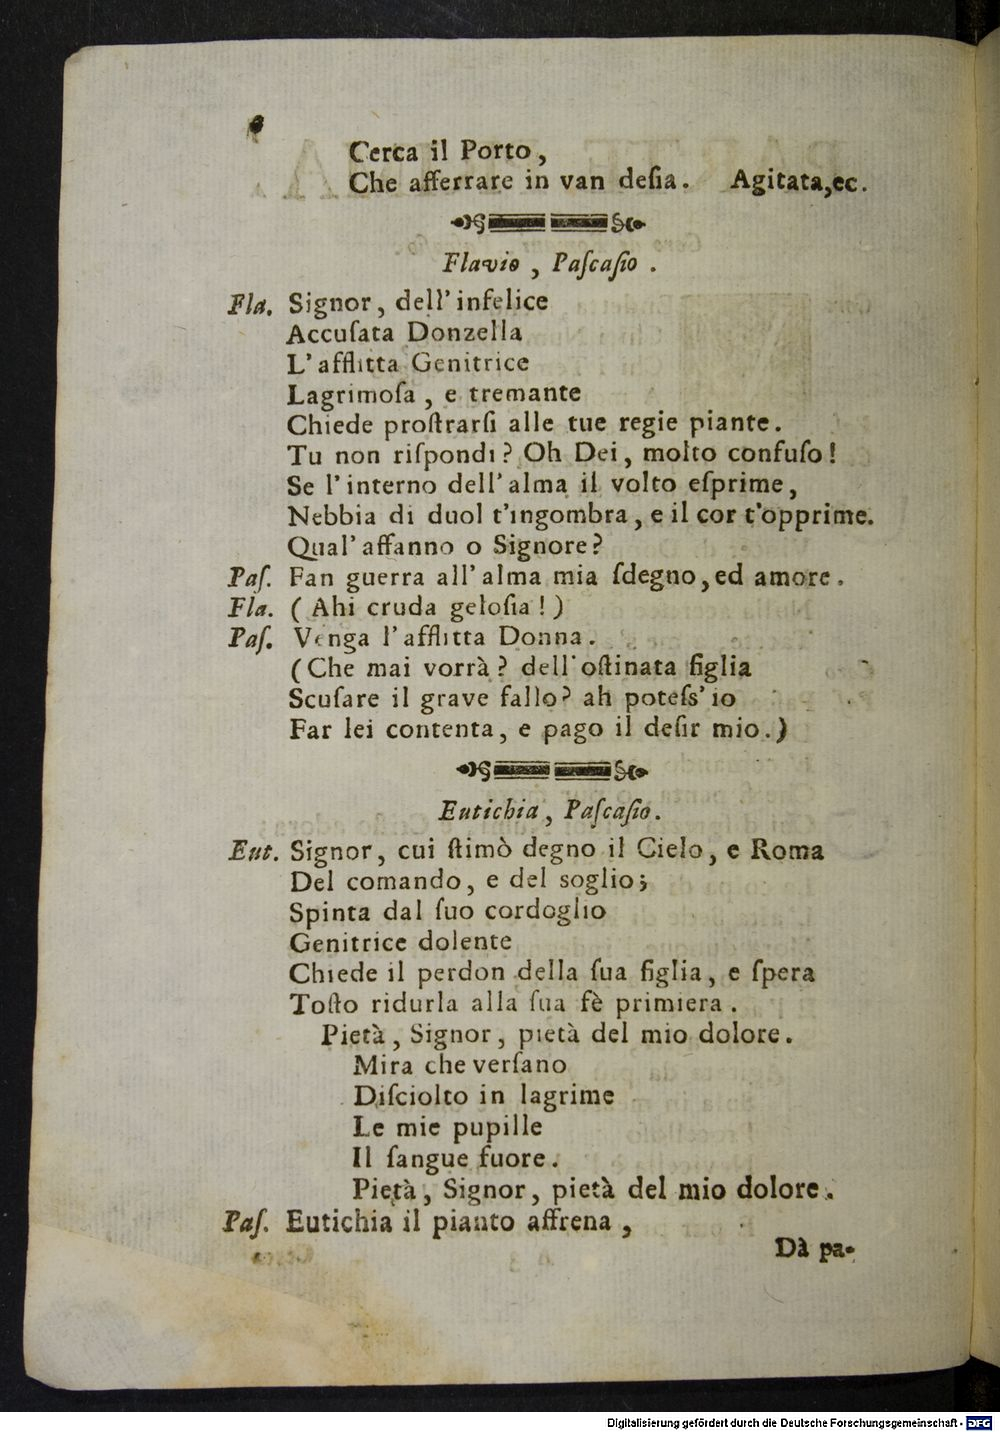 6
Cerca il Porto,
Che afferrare in van deſia. Agitata,ec.
Flavio, Paſcaſio.
Fla. Signor, dell' infelice
Accuſata Donzella
L' afflitta Genitrice
Lagrimoſa, e tremante
Chiede proſtrarſi alle tue regie piante.
Tu non riſpondi? Oh Dei, molto confuſo!
Se l' interno dell' alma il volto eſprime,
Nebbia di duol t'ingombra, e il cor t'opprime.
Qual' affanno o Signore?
Paſ. Fan guerra all' alma mia ſdegno, ed amore.
Fla. (Ahi cruda geloſia!)
Paſ. Venga l' afflitta Donna.
(Che mai vorrà? dell' oſtinata figlia
Scuſare il grave fallo? ah poteſs' io
Far lei contenta, e pago il deſir mio.)
Eutichia, Paſcaſio.
Eut. Signor, cui ſtimò degno il Cielo, e Roma
Del comando, e del soglio;
Spinta dal ſuo cordoglio
Genitrice dolente
Chiede il perdon della ſua figlia, e ſpera
Toſto ridurla alla ſua fè primiera.
Pietà, Signor, pietà del mio dolore.
Mira che verſano
Diſciolto in lagrime
Le mie pupille
Il ſangue fuore.
Pietà, Signor, pietà del mio dolore.
Paſ. Eutichia il pianto affrena,
Dà pa-
Digitalisierung gefördert durch die Deutsche Forschungsgemeinschaft - DFG